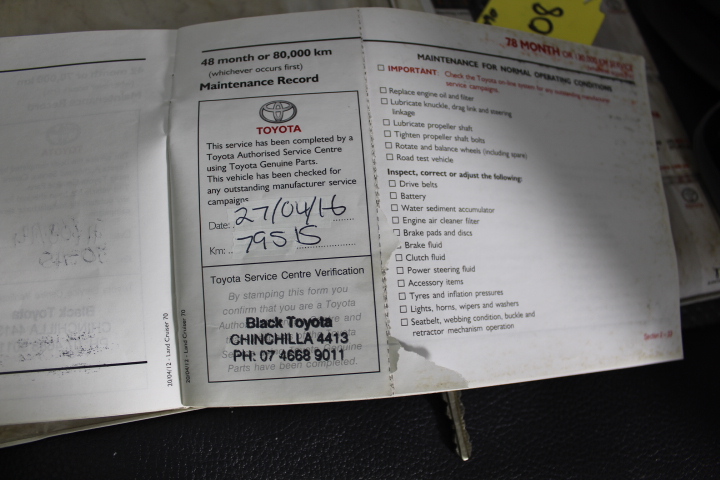 08
48 month or 80,000 km
(whichever occurs first)
Maintenance Record
TOYOTA
This service has been completed by a
Toyota Authorised Service Centre
using Toyota Genuine Parts.
This vehicle has been checked for
any outstanding manufacturer service
campaigns.
Date: 27/04/16
Km: 79515
Toyota Service Centre Verification
By stamping this form you
confirm that you are a Toyota
Black Toyota
CHINCHILLA 4413
PH: 07 4668 9011
Parts have been completed.
20/04/12 - Land Cruiser 70
20/04/12 - Land Cruiser 70
78 MONTH OR
MAINTENANCE FOR NORMAL OPERATING CONDITIONS
IMPORTANT: Check the Toyota on-line system for any outstanding manufacturer
service campaigns.
Replace engine oil and filter
Lubricate knuckle, drag link and steering
linkage
Lubricate propeller shaft
Tighten propeller shaft bolts
Rotate and balance wheels (including spare)
Road test vehicle
Inspect, correct or adjust the following:
Drive belts
Battery
Water sediment accumulator
Engine air cleaner filter
Brake pads and discs
Brake fluid
Clutch fluid
Power steering fluid
Accessory items
Tyres and inflation pressures
Lights, horns, wipers and washers
Seatbelt, webbing condition, buckle and
retractor mechanism operation